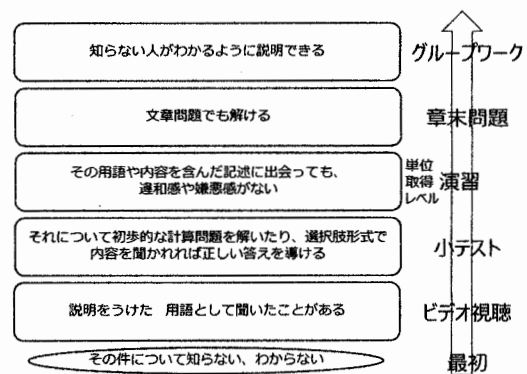 知らない人がわかるように説明できる
グループワーク
文章問題でも解ける
章末問題
その用語や内容を含んだ記述に出会っても、
違和感や嫌悪感がない
単位
取得
レベル
演習
それについて初歩的な計算問題を解いたり、選択肢形式で
内容を聞かれれば正しい答えを導ける
小テスト
説明をうけた 用語として聞いたことがある
ビデオ視聴
その件について知らない、わからない
最初